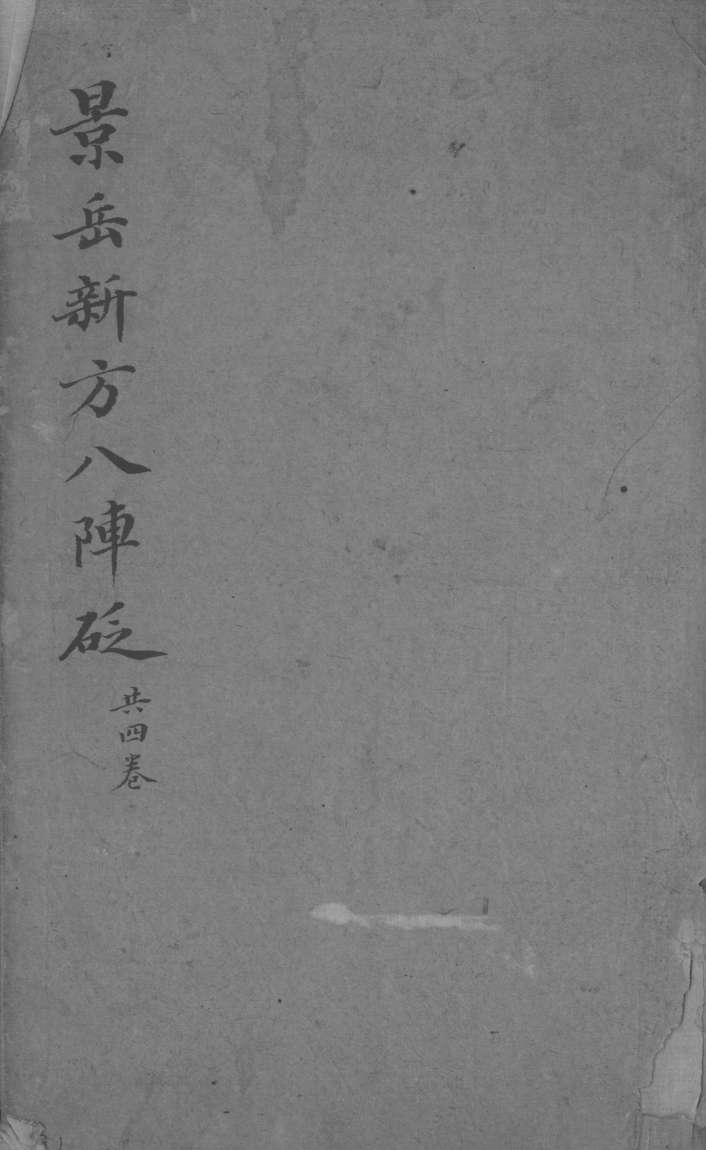 景岳新方八陣砭
共四卷